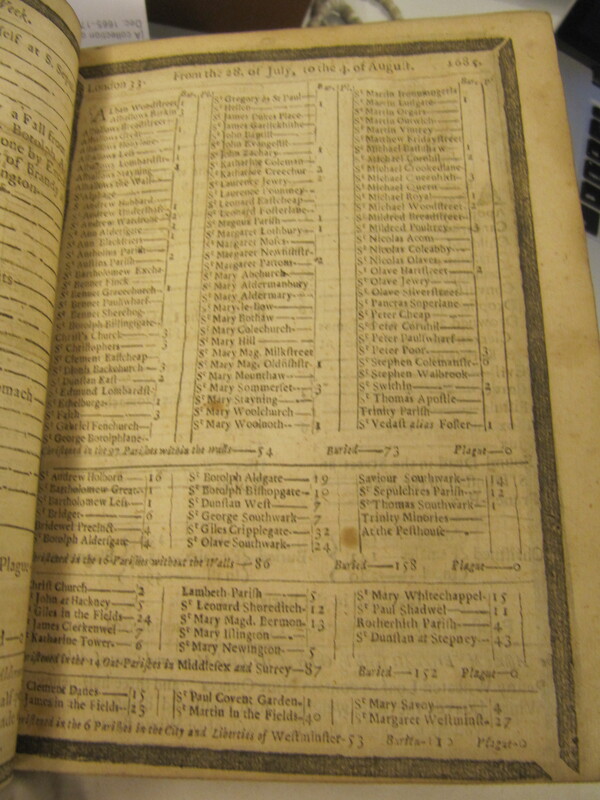 Week.
self at S. Sep
a Fall from
Botolph
one by
of Brandy
ington
omach
Plague
London 33. From the 28. of July, to the 4. of August. 1685.
Bur. Pl.
St Alban Woodstreet
Alhallows Barkin
Alhallows Breadstreet
Alhallows Great
Alhallows Honylane
Alhallows Less
Alhallows Lombardstr
Alhallows Stayning
Alhallows the Wall
St Alphage
St Andrew Hubbard
St Andrew Undershaft
St Andrew Wardrobe
St Ann Aldersgate
St Ann Blackfriers
St Antholins Parish
St Austins Parish
St Bartholomew Excha
St Bennet Finck
St Bennet Gracechurch
St Bennet Paulswharf
St Bennet Sherehog
St Botolph Billingsgate
Christ's Church
St Christophers
St Clement Eastcheap
St Dionis Backchurch
St Dunstan East
St Edmund Lombardst
St Ethelburga
St Faith
St Gabriel Fenchurch
St George Botolphlane
St Gregory by St Paul
St Hellen
St James Dukes Place
St James Garlickhithe
St John Baptist
St John Evangelist
St John Zachary
St Katharine Coleman
St Katharine Creechur
St Lawrence Jewry
St Lawrence Pountney
St Leonard Eastcheap
St Leonard Fosterlane
St Magnus Parish
St Margaret Lothbury
St Margaret Moses
St Margaret Newfishstr
St Margaret Pattons
St Mary Abchurch
St Mary Aldermanbury
St Mary Aldermary
St Mary le Bow
St Mary Bothaw
St Mary Colechurch
St Mary Hill
St Mary Mag. Milkstreet
St Mary Mag. Oldfishstr 1
St Mary Mounthaw
St Mary Sommerset 3
St Mary Stayning
St Mary Woolchurch
St Mary Woolnoth 1
St Martin Ironmongerla
St Martin Ludgate
St Martin Orgars
St Martin Outwich
St Martin Vintrey
St Matthew Fridaystreet
St Michael Bassishaw
St Michael Cornhil
St Michael Crookedlane
St Michael Queenhith
St Michael Quern
St Michael Royal
St Michael Woodstreet
St Mildred Breadstreet
St Mildred Poultrey
St Nicolas Acons
St Nicolas Coleabby
St Nicolas Olaves
St Olave Hartstreet
St Olave Jewry
St Olave Silverstreet
St Pancras Soperlane
St Peter Cheap
St Peter Cornhil
St Peter Paulswharf
St Peter Poor
St Stephen Colemanstr
St Stephen Walbrook
St Swithin
St Thomas Apostle
Trinity Parish
St Vedast alias Foster 1
Christned in the 97 Parishes within the walls 54 Buried 73 Plague 0
St Andrew Holborn 16
St Bartholomew Great 1
St Bartholomew Less 1
St Bridget 6
Bridewel Precinct 4
St Botolph Aldersgate 4
St Botolph Aldgate 19
St Botolph Bishopgate 10
St Dunstan West 7
St George Southwark 7
St Giles Cripplegate 32
St Olave Southwark 24
Saviour Southwark 14
St Sepulchres Parish 12
St Thomas Southwark 1
Trinity Minories
At the Pesthouse
Christned in the 16 Parishes without the Walls 86 Buried 158 Plague 0
Christ Church 2
John at Hackney 5
Giles in the Fields 24
James Clerkenwel 7
Katharine Tower 6
Lambeth Parish 5
St Leonard Shoreditch 12
St Mary Magd. Bermon. 13
St Mary Islington
St Mary Newington 5
St Mary Whitechappel 15
St Paul Shadwel 11
Rotherhith Parish 4
St Dunstan at Stepney 43
Christned in the 14 Out-Parishes in Middlesex and Surrey 87 Buried 152 Plague 0
Clement Danes 15
James in the Fields 23
St Paul Covent Garden 1
St Martin in the Fields 40
St Mary Savoy 4
St Margaret Westminst. 27
Christned in the 6 Parishes in the City and Liberties of Westminster 53 Buried Plague 0